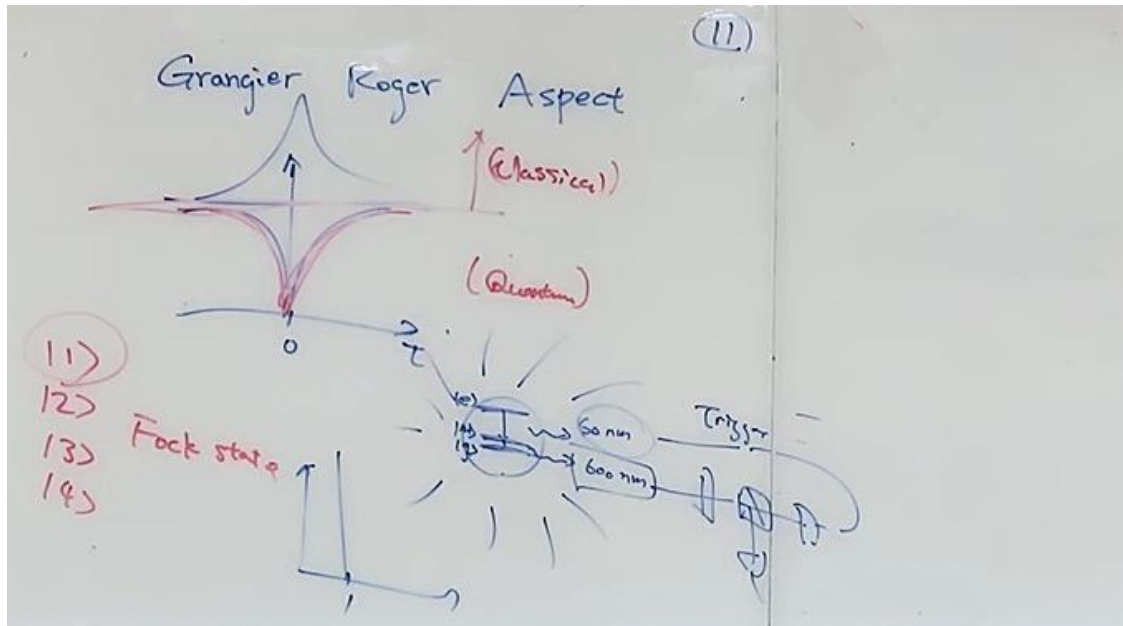 (11)
Grangier Roger Aspect
(Classical)
(Quantum)
0
τ
|1>
|2>
|3>
|4>
Fock state
|e>
60 nm
Trigger
600 nm
1